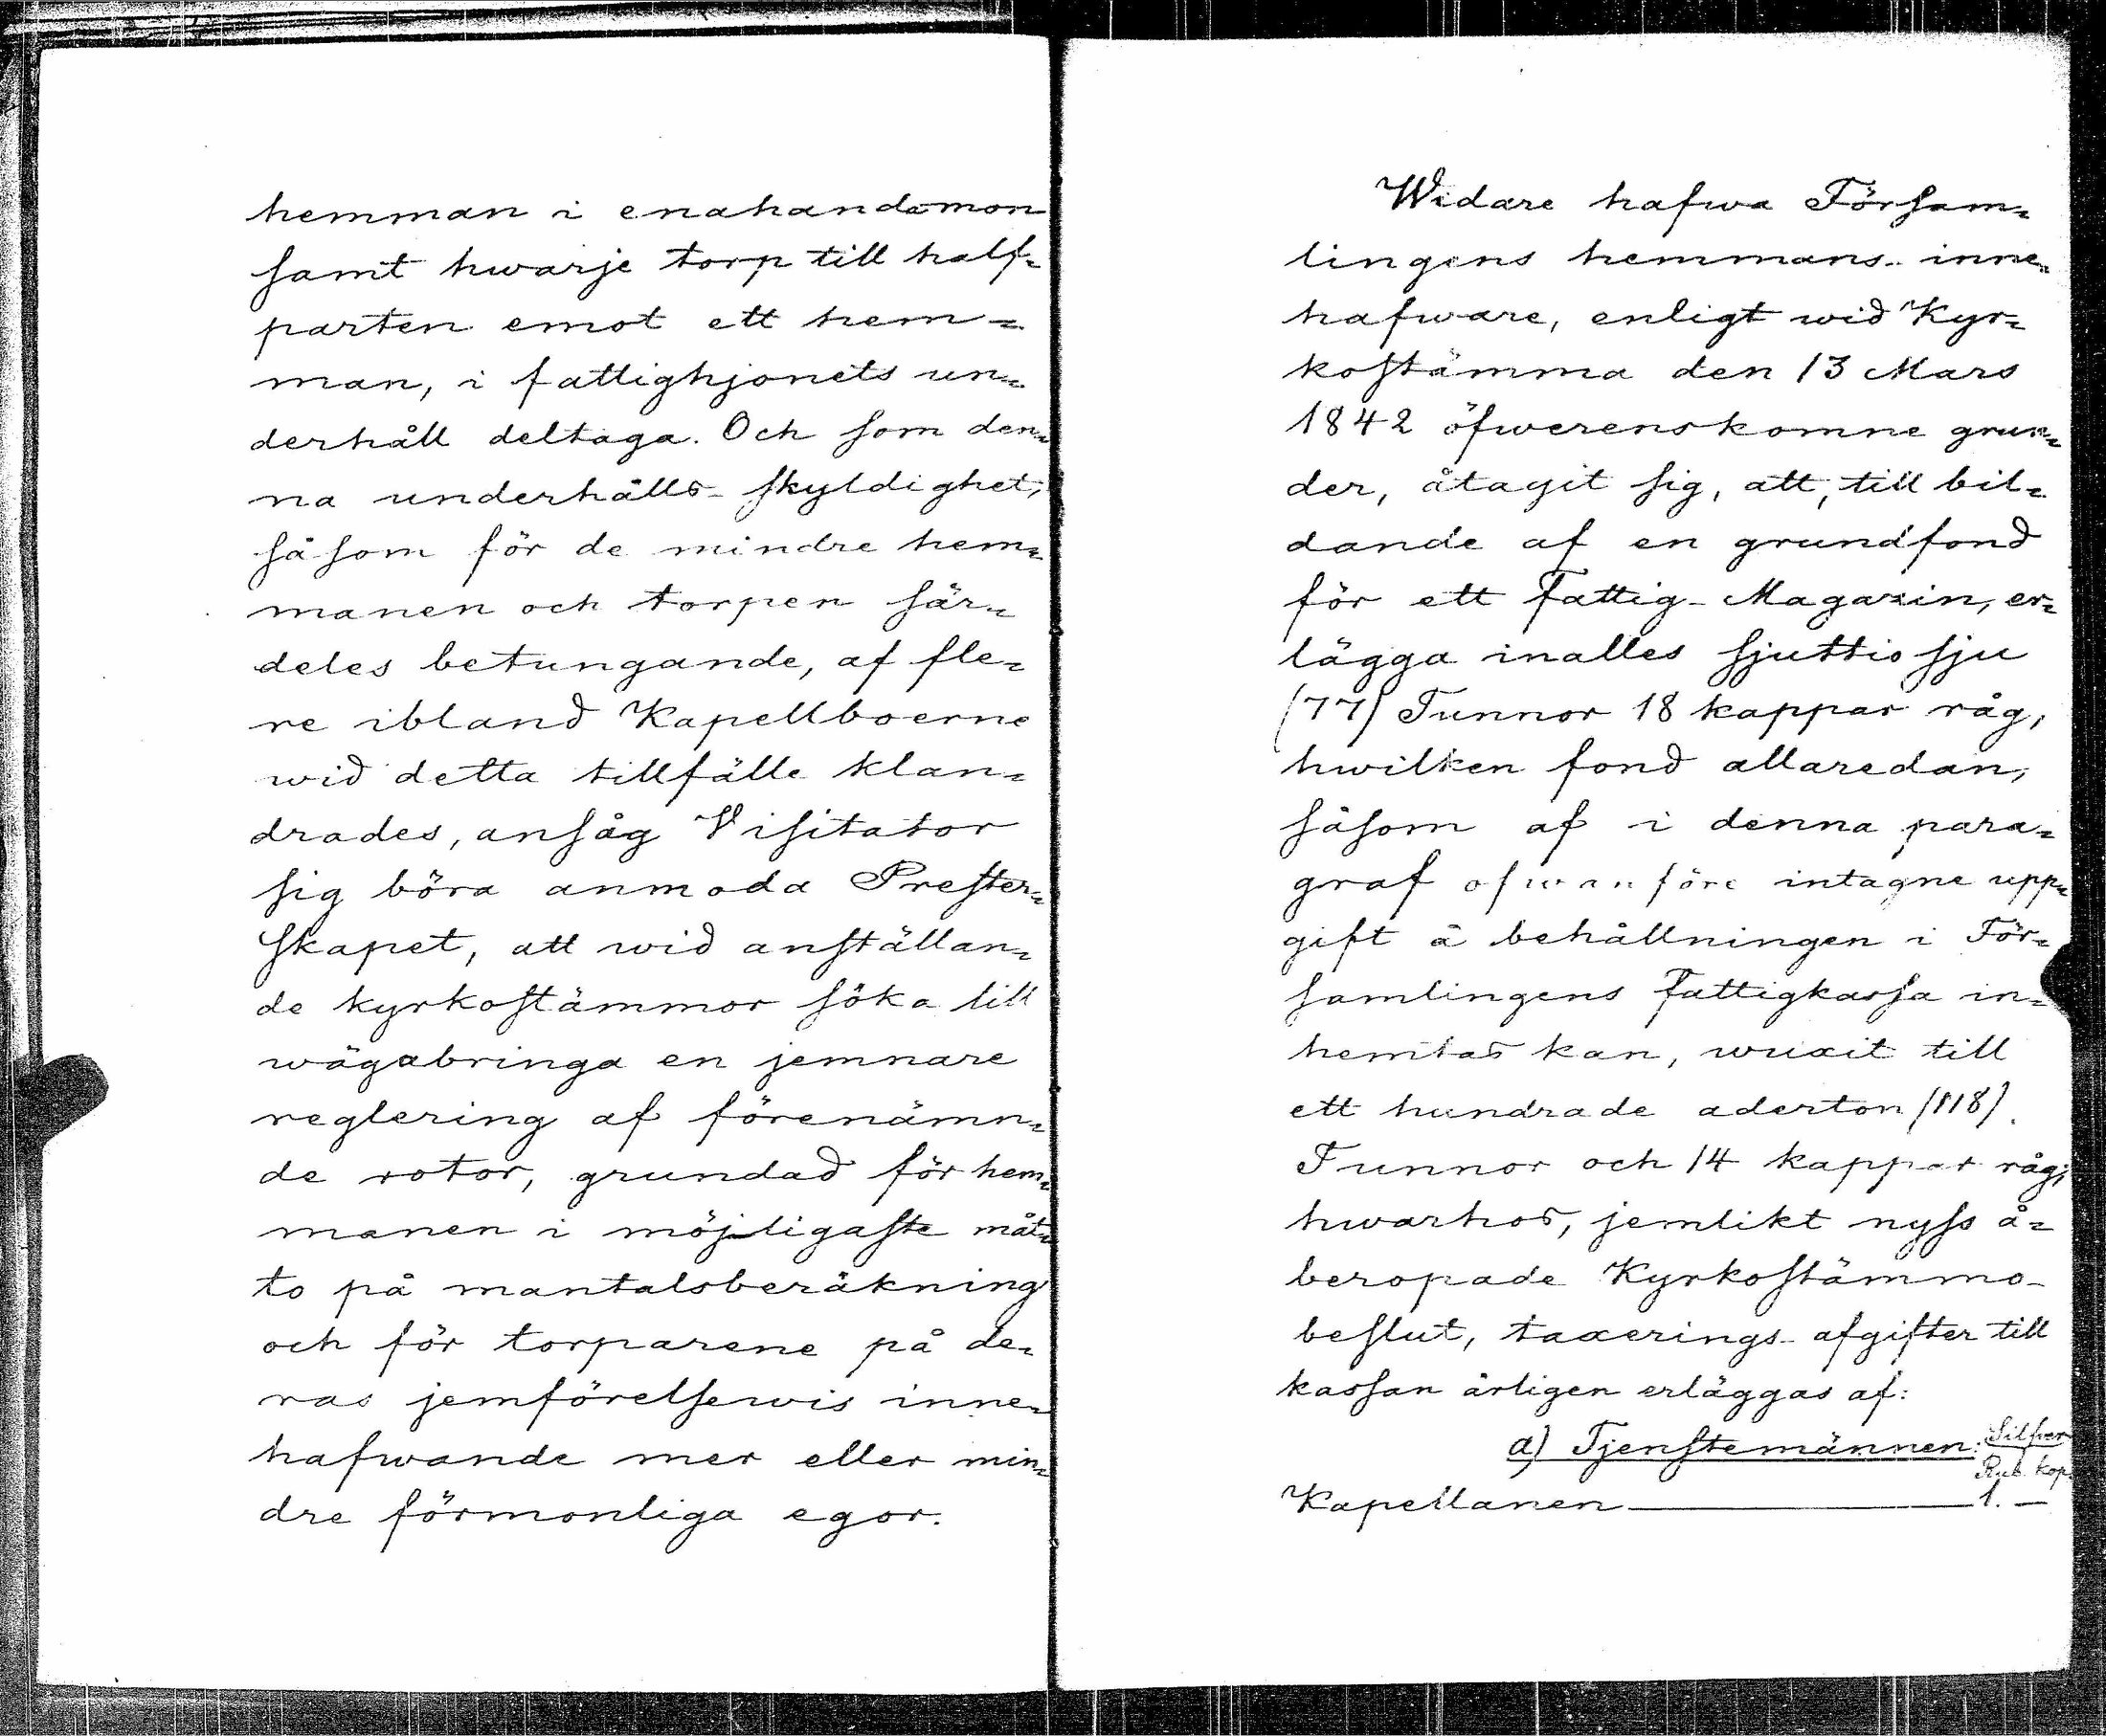 hemman i enahanda mon
samt hwarje torp till half=
parten emot ett hem=
man, i fattighjonets un=
derhåll deltaga. Och som den=
na underhålls-skyldighet,
såsom för de mindre hem=
manen och torpen sär=
deles betungande, af fle=
re ibland Kapellboerne
wid detta tillfälle klan=
drades, ansåg Visitator
sig böra anmoda Prester=
skapet, att wid anställan=
de kyrkostämmor söka till
wägabringa en jemnare
reglering af förenämn=
de rotor, grundad för hem=
manen i möjligaste måt=
to på mantalsberäkning
och för torparene på de=
ras jemförelsewis inne=
hafwande mer eller min=
dre förmonliga egor.
Widare hafwa Försam=
lingens hemmans-inne=
hafware, enligt wid Kyr=
kostämma den 13 Mars
1842 öfwerenskomne grun=
der, åtagit sig, att, till bil=
dande af en grundfond
för ett Fattig-Magazin, er=
lägga inalles sjuttio sju
(77) Tunnor 18 kappar råg,
hwilken fond allaredan,
såsom af i denna para=
graf ofwanföre intagne upp=
gift å behållningen i För=
samlingens Fattigkassa in=
hemtas kan, wuxit till
ett hundrade aderton (118).
Tunnor och 14 kappar råg;
hwarhos, jemlikt nyss å=
beropade Kyrkostämmo-
beslut, taxerings-afgifter till
kassan årligen erläggas af:
a) Tjenstemännen: Silfver
Rub. kop.
Kapellanen 1. —